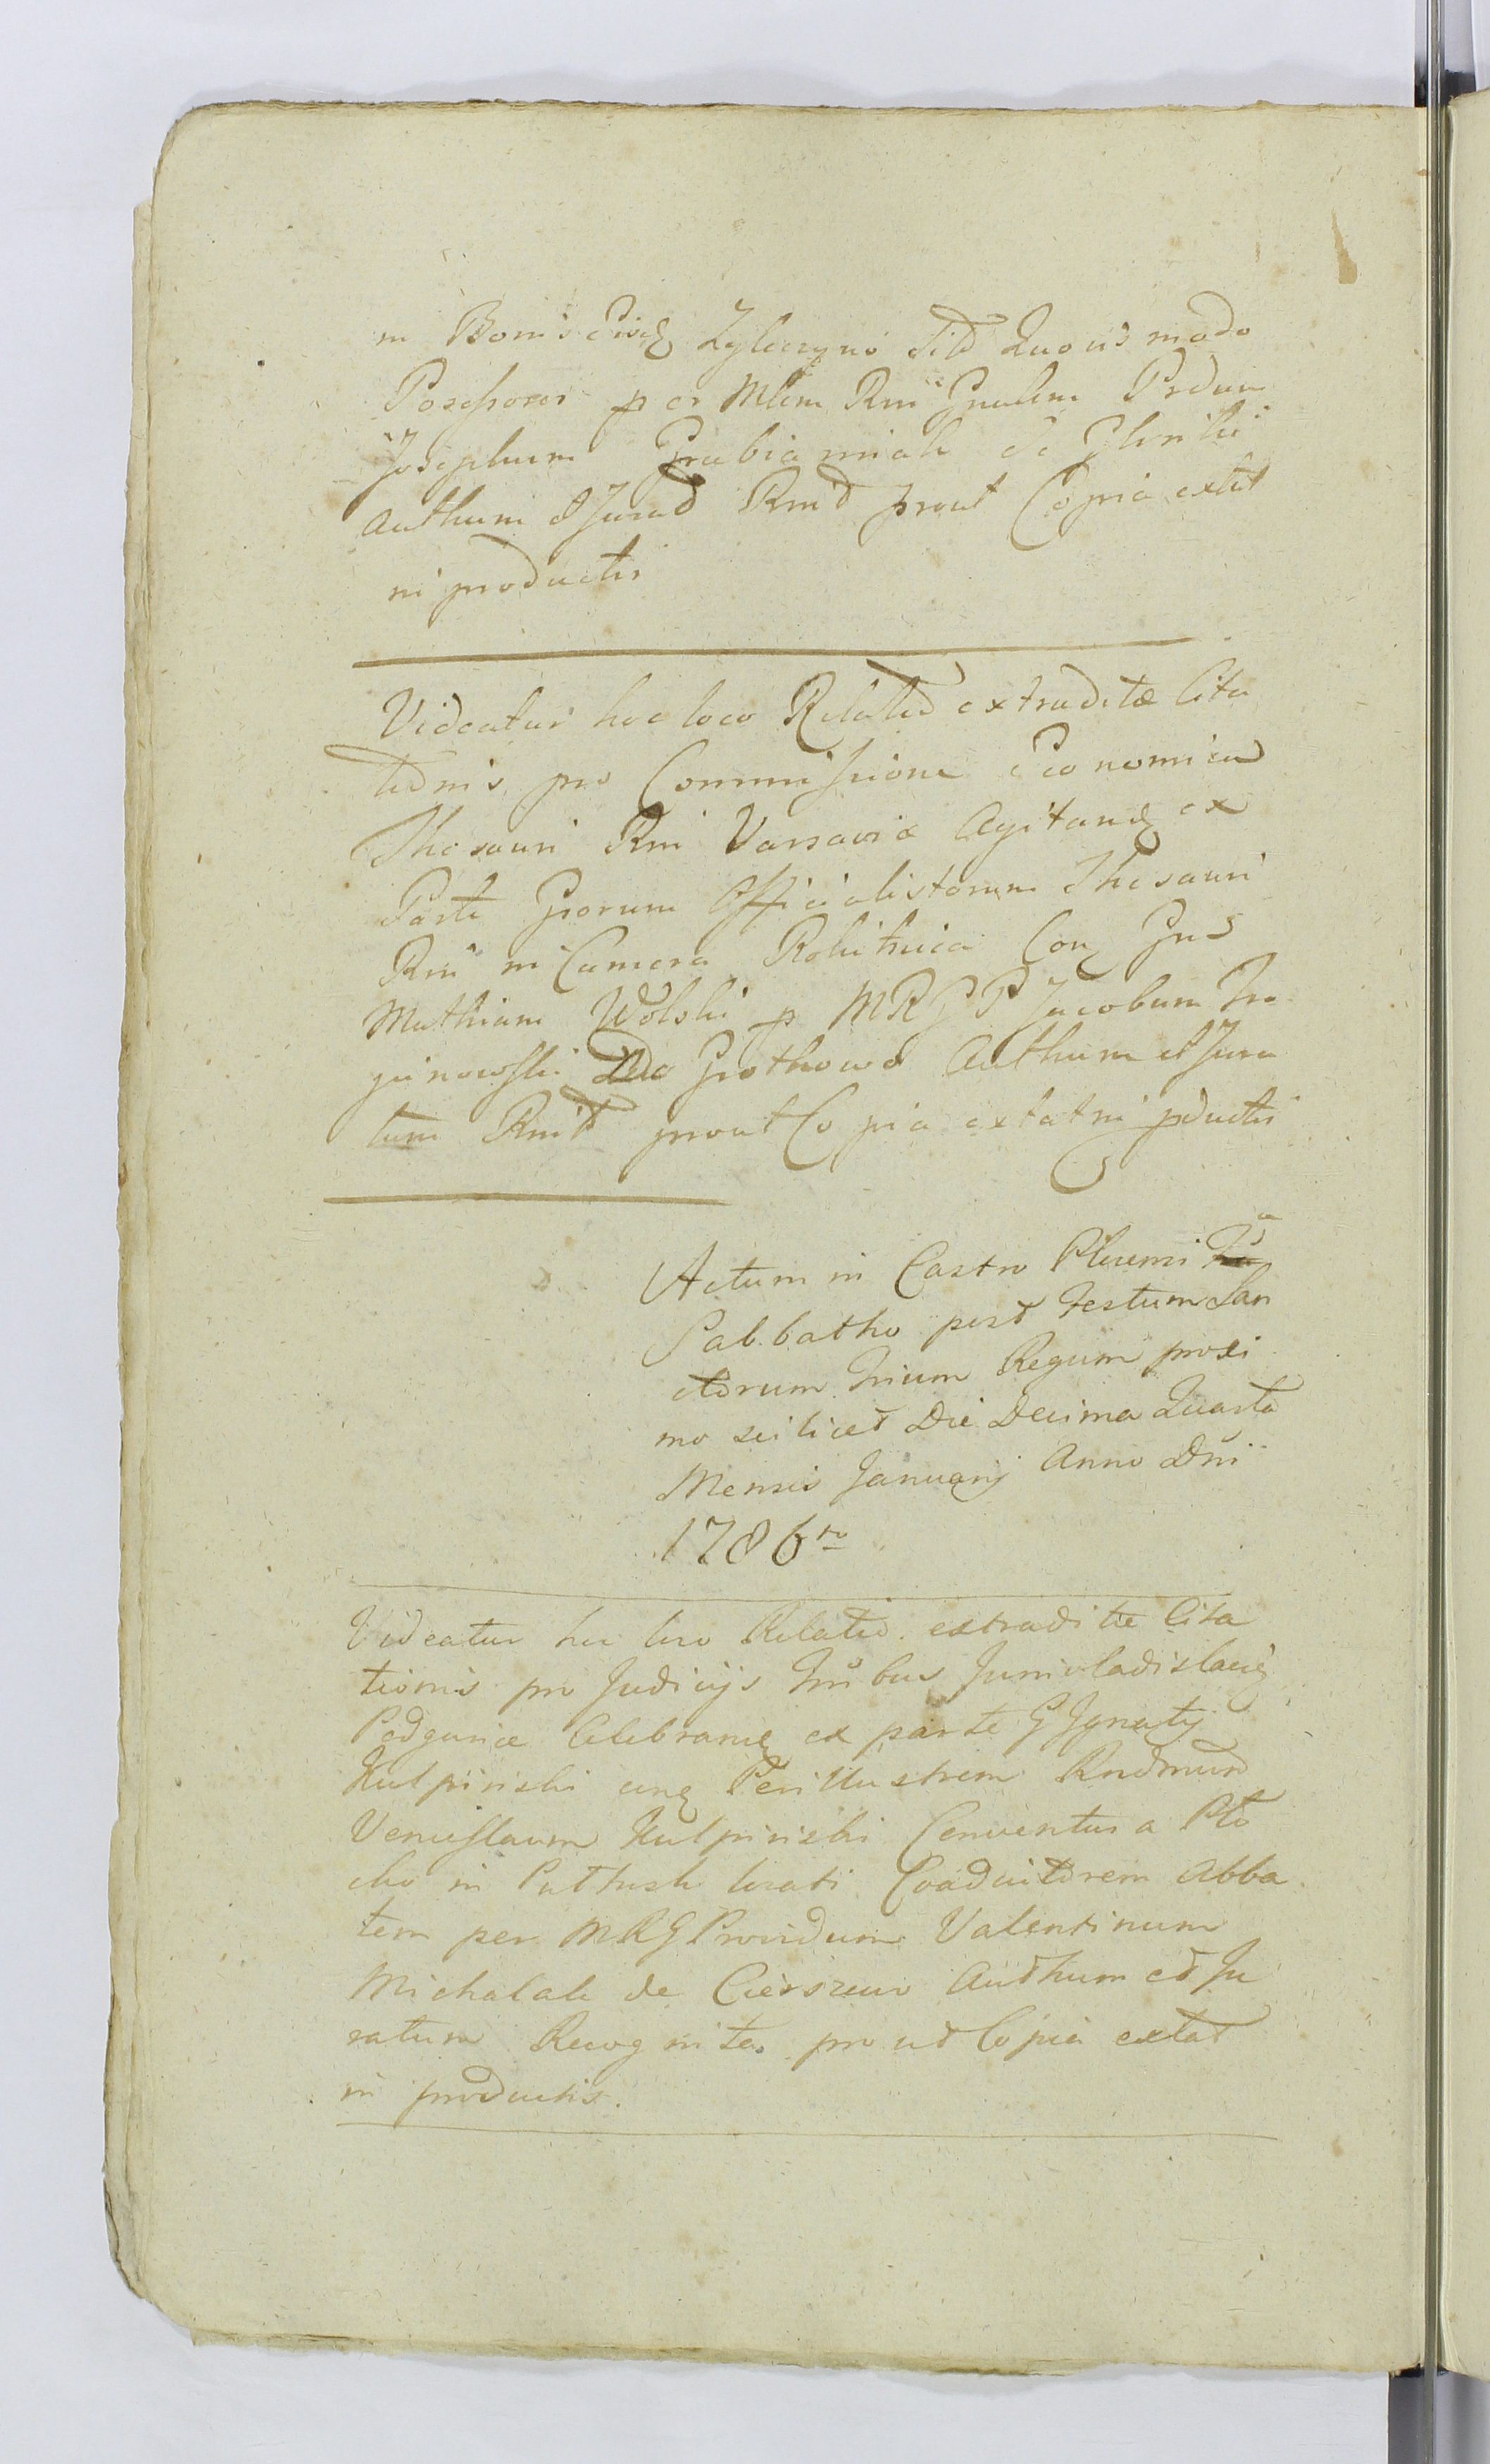 in Bonis Żylaczyno sito Quovis modo
Possessores per Mlem Rni Gnalem Prdum
Josephum Grabianiak de
Authum et Jurad Rndt prout Copia extat
in productis
Videatur hoc loco Relatio extraditæ Cita
tionis pro Commissione Œconomica
Thesauri Rni Varsaviæ Agitand ex
Parte Grorum Officialistorum Thesauri
Rni in Camera Rokitnica Con Gns
Mathiam Wolski p MRGP Jacobum Tro
janowski De Grothowo Authum et Jura
tum Rndt prout Copia extat in pductis
Actum in Castro Plunemi
Sabbatho post Festum San
ctorum Trium Regum proxi
mo scilicet Die Decima Quarta
Mensis Januarij Anno Dni
1786to
Videatur hic loco Relatio extraditæ Cita
tionis pro Judicijs Juniwladislaviæ
Podguriæ Celebrand ex parte G Ignatij
Kulpinski conq Perillustrem Rndmum
Venceslaum Kulpinski Conventus a Plo
cko in Puttusk locati Coadiutorem Abba
tem per MRG Providum Valentinum
Michalak de Cierszewo Authum et Ju
ratum Recognita prout Copia extat
in productis.